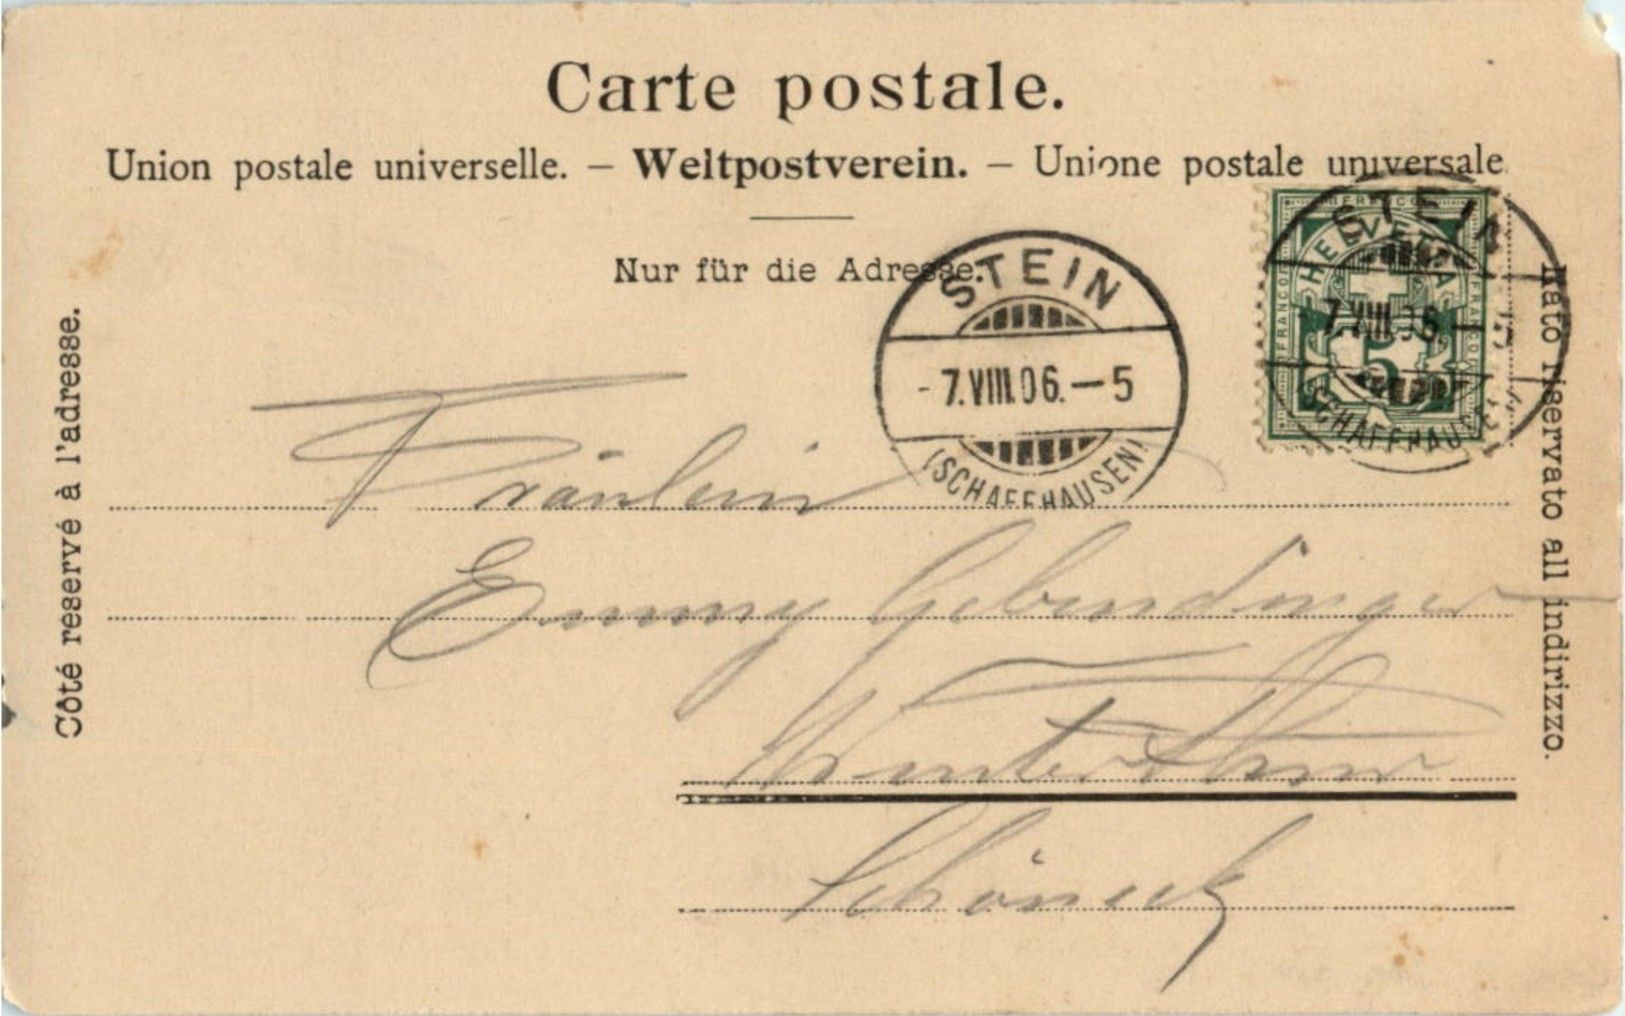 Carte postale.
Union postale universelle. – Weltpostverein. – Unione postale universale.
Nur für die Adresse.
Côté reservé à l'adresse.
STEIN
- 7.VIII.06.–5
(SCHAFFHAUSEN)
FRANCO
HELVETIA
5
STEIN
7.VIII.06.–5
(SCHAFFHAUSEN)
Lato riservato all indirizzo.
Fräulein
Emmy Gebendinger
Winterthur
Schöneck